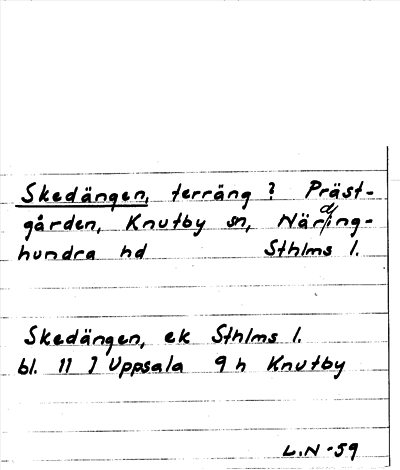 Skedängen, terräng ? Präst-
gården, Knutby sn, Närding-
hundra hd Sthlms l.
Skedängen, ek Sthlms l.
bl. 11 I Uppsala 9 h Knutby
L.N -59